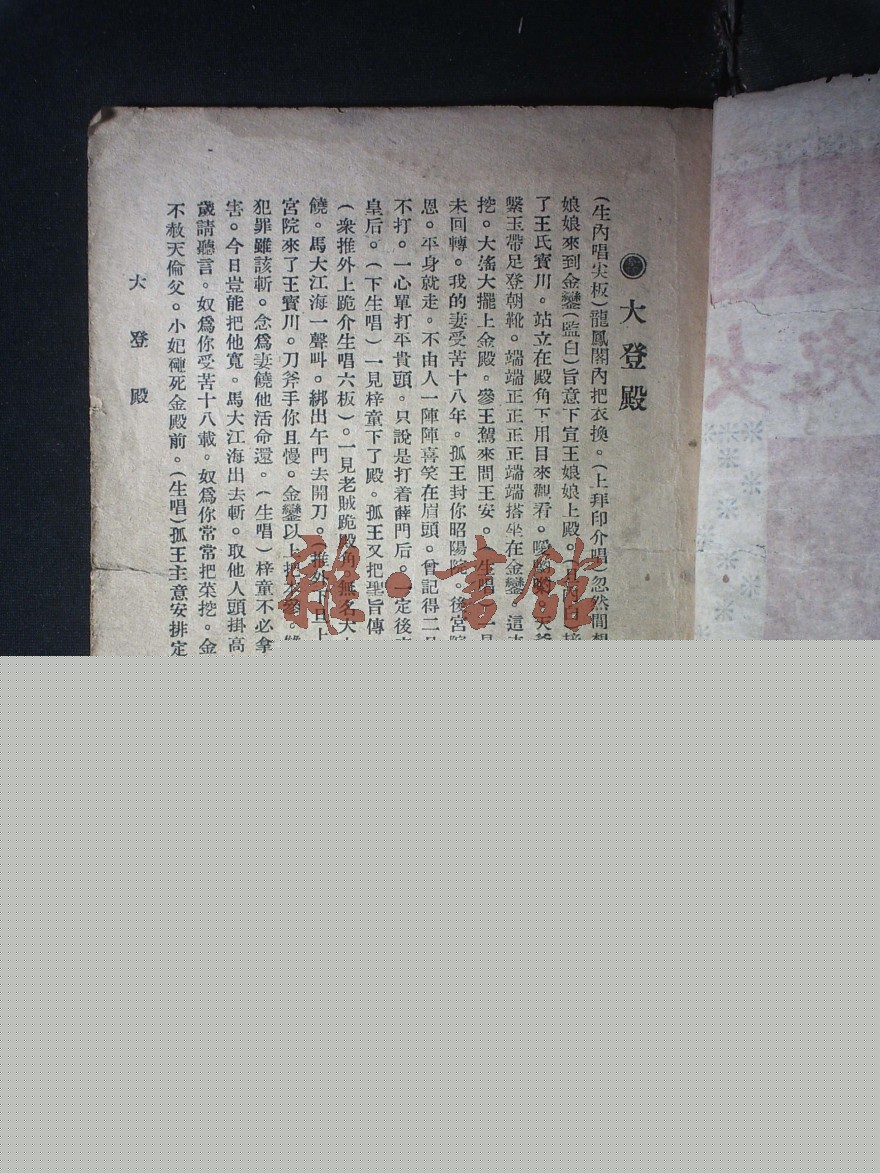 大登殿
(生內唱尖板)龍鳳閣內把衣換。(上拜印介唱)忽然間想
娘娘來到金鑾(監白)旨意下宣王娘娘上殿。
了王氏寳川。站立在殿角下用目來觀看。
繫玉帶足登朝靴。端端正正正正端端搭坐在金鑾。這
挖。大滛大擺上金殿。參王駕來問王安。(生唱)一見
未回轉。我的妻受苦十八年。孤王封你昭陽院。後宮院
恩。平身就走。不由人一陣陣喜笑在眉頭。曾記得二月
不打。一心單打平貴頭。只說是打着薛門后。一定後
皇后。(下生唱)一見梓童下了殿。孤王又把聖旨傳
(衆推外上跪介生唱六板)。一見老賊跪殿角。無名火
饒。馬大江海一聲叫。綁出午門去開刀。(推外下旦上
宮院來了王寳川。刀斧手你且慢。金鑾以上把本參。
犯罪雖該斬。念爲妻饒他活命還。(生唱)梓童不必拿
害。今日豈能把他寬。馬大江海出去斬。取他人頭掛高
歲請聽言。奴爲你受苦十八載。奴爲你常常把菜挖。金
不赦天倫父。小妃碰死金殿前。(生唱)孤王主意安排定
大登殿
雜·書館